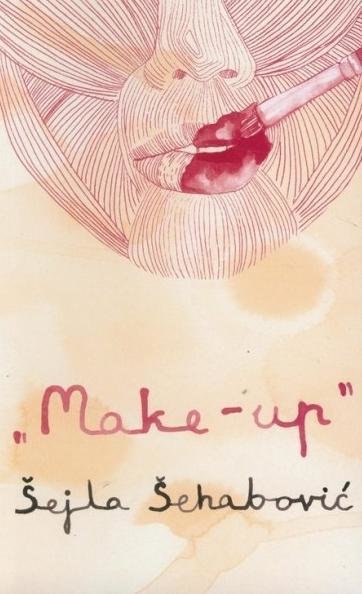 „Make-up”
Šejla Šehabović